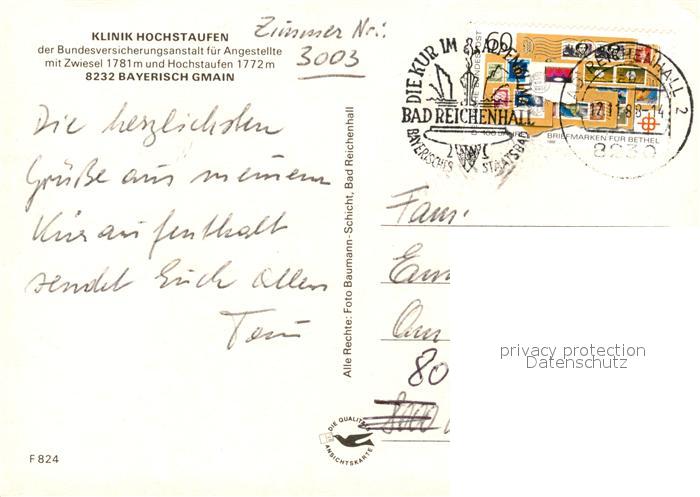 KLINIK HOCHSTAUFEN
der Bundesversicherungsanstalt für Angestellte
mit Zwiesel 1781 m und Hochstaufen 1772 m
8232 BAYERISCH GMAIN
Zimmer Nr:
3003
Die herzlichsten
Grüße aus meinem
Kuraufenthalt
sendet Euch allen
Toni
F 824
Alle Rechte: Foto Baumann-Schicht, Bad Reichenhall
DIE QUALITÄTS
ANSICHTSKARTE
DIE KUR IM
BAD REICHENHALL
BAYERISCHES STAATSBAD
60
BUNDESPOST
BRIEFMARKEN FÜR BETHEL
BAD REICHENHALL 2
-14
8230
Fam.
80
8000
privacy protection
Datenschutz